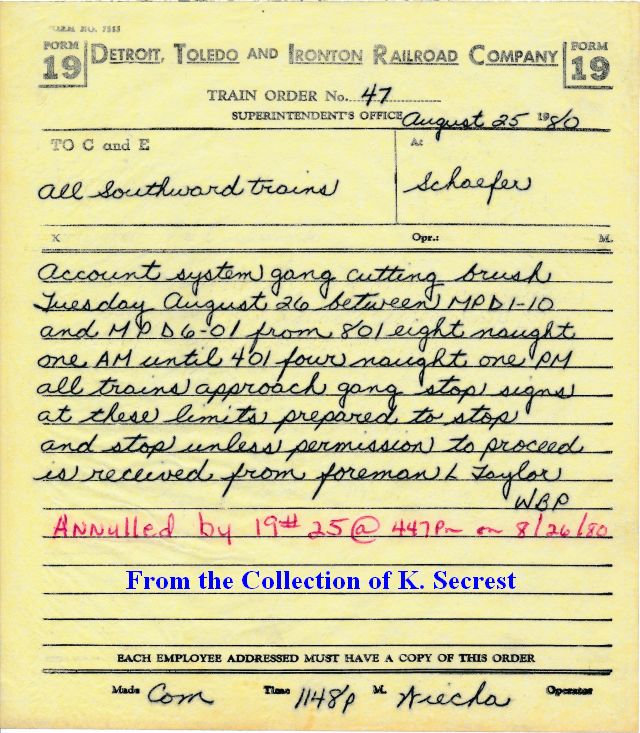 FORM NO. 7555
FORM 19 DETROIT, TOLEDO AND IRONTON RAILROAD COMPANY FORM 19
TRAIN ORDER No. 47
SUPERINTENDENT'S OFFICE August 25 1980
TO C and E At
All Southward trains Schaefer
X Opr.: M.
Account system gang cutting brush
Tuesday August 26 between MPD1-10
and MPD6-01 from 801 eight naught
one AM until 401 four naught one PM
all trains approach gang stop signs
at these limits prepared to stop
and stop unless permission to proceed
is received from foreman L Taylor
WBP
Annulled by 19# 25 @ 447Pm on 8/26/80
From the Collection of K. Secrest
EACH EMPLOYEE ADDRESSED MUST HAVE A COPY OF THIS ORDER
Made Com Time 1148p M. Wiecha Operator